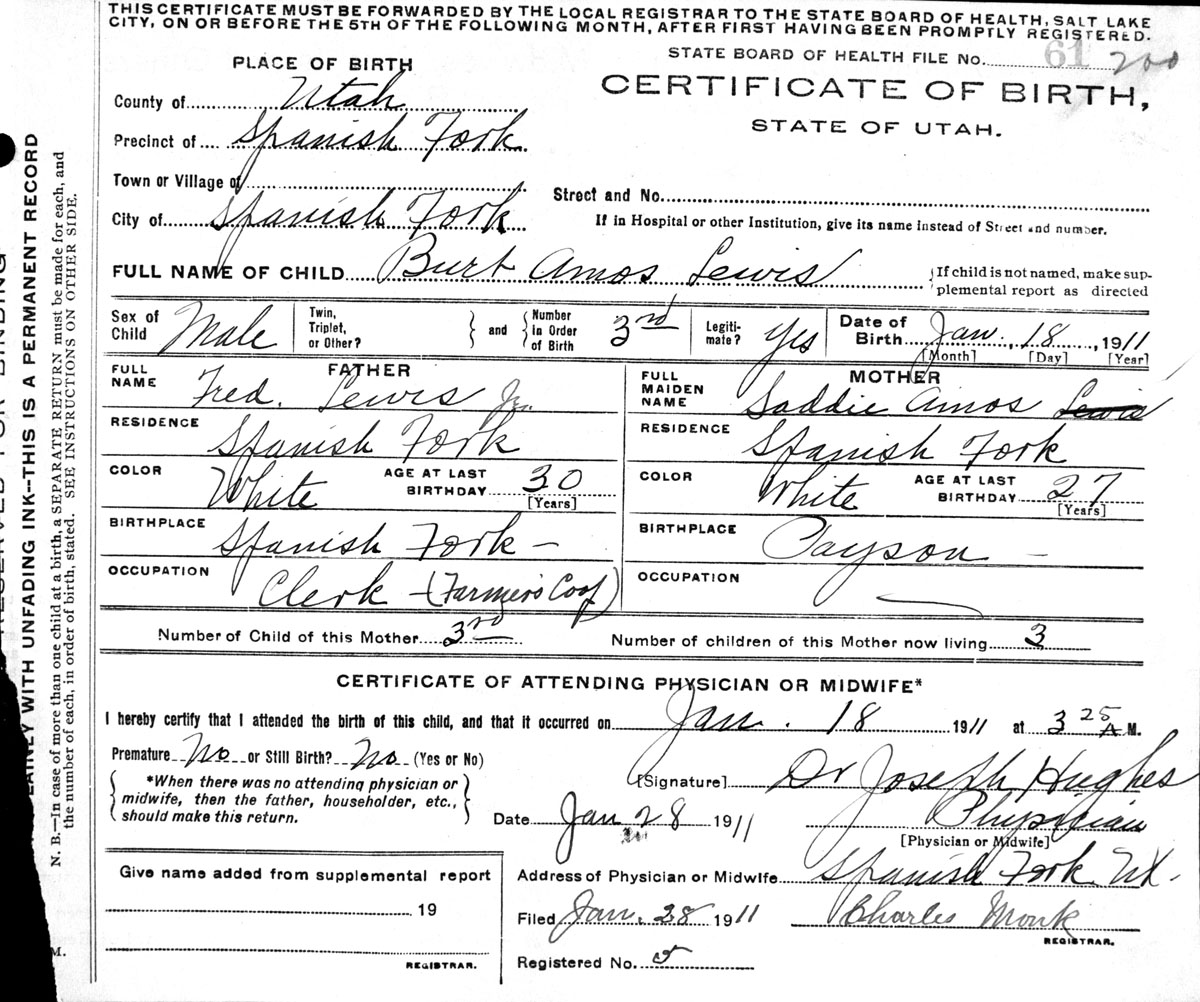 THIS CERTIFICATE MUST BE FORWARDED BY THE LOCAL REGISTRAR TO THE STATE BOARD OF HEALTH, SALT LAKE
CITY, ON OR BEFORE THE 5TH OF THE FOLLOWING MONTH, AFTER FIRST HAVING BEEN PROMPTLY REGISTERED.
STATE BOARD OF HEALTH FILE No. 61 200
PLACE OF BIRTH
CERTIFICATE OF BIRTH,
STATE OF UTAH.
County of Utah
Precinct of Spanish Fork.
Town or Village of
Street and No.
City of Spanish Fork
If in Hospital or other Institution, give its name instead of Street and number.
FULL NAME OF CHILD Burt Amos Lewis
{If child is not named, make sup-
plemental report as directed
Sex of
Child Male
Twin,
Triplet,
or Other? } and { Number
in Order
of Birth 3rd
Legiti-
mate? Yes
Date of
Birth Jan. 18, 1911
[Month] [Day] [Year]
FATHER
FULL
NAME Fred. Lewis Jr.
RESIDENCE Spanish Fork
COLOR White
AGE AT LAST
BIRTHDAY 30
[Years]
BIRTHPLACE Spanish Fork -
OCCUPATION Clerk - (Farmers Coop)
MOTHER
FULL
MAIDEN
NAME Saddie Amos Lewis
RESIDENCE Spanish Fork
COLOR White
AGE AT LAST
BIRTHDAY 27
[Years]
BIRTHPLACE Payson -
OCCUPATION
Number of Child of this Mother 3rd
Number of children of this Mother now living 3
CERTIFICATE OF ATTENDING PHYSICIAN OR MIDWIFE*
I hereby certify that I attended the birth of this child, and that it occurred on Jan. 18 1911 at 3 25 A M.
Premature No or Still Birth? No (Yes or No)
*When there was no attending physician or
midwife, then the father, householder, etc.,
should make this return.
[Signature] Dr Joseph Hughes
Date Jan 28 1911
Physician
[Physician or Midwife]
Address of Physician or Midwife Spanish Fork Ut.
Filed Jan. 28 1911
Charles Monk
REGISTRAR.
Registered No. 5
Give name added from supplemental report
19
REGISTRAR.
RESERVED FOR BINDING
PLAINLY WITH UNFADING INK--THIS IS A PERMANENT RECORD
N. B.—In case of more than one child at a birth, a SEPARATE RETURN must be made for each, and
the number of each, in order of birth, stated. SEE INSTRUCTIONS ON OTHER SIDE.
M.